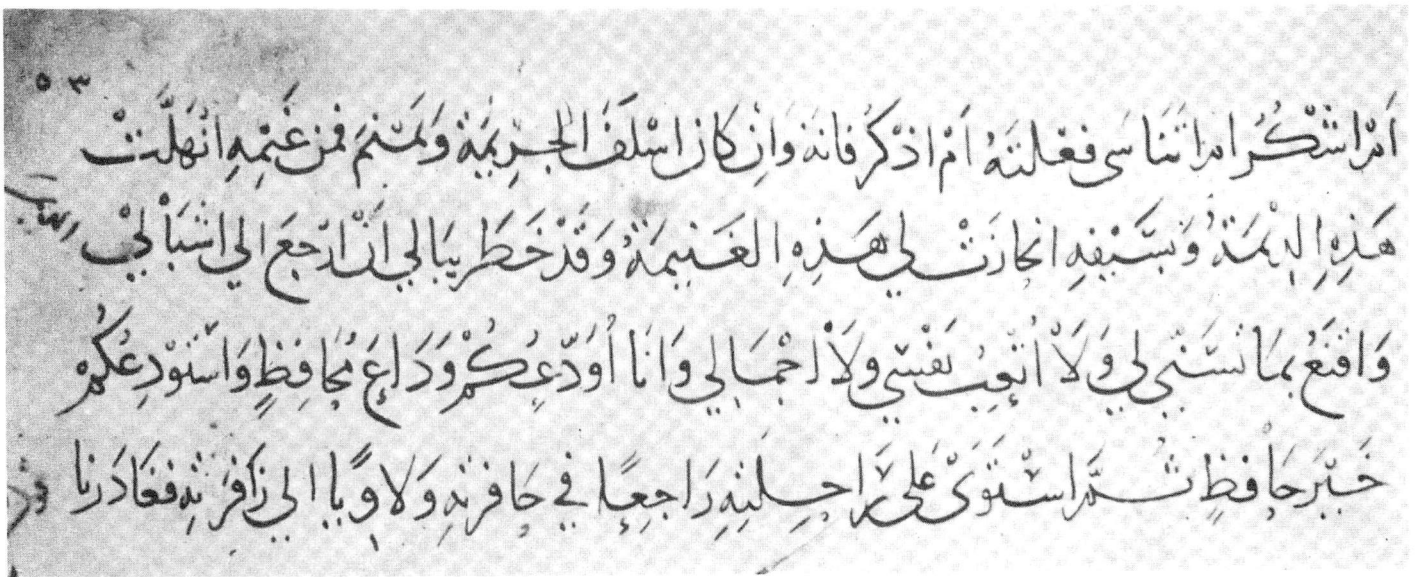 ٥٣
أَمْ اشْكُرُ امْ اتَنَاسَى فعْلتَهُ أَمْ اذْكرُ فانهُ وَانِ كان اسْلَفَ الجرِيْمَة وَنَمْنَمَ فمن غَيْمِهِ انْهَلَّتْ
هَذِهِ الدِيْمَةُ وَبسَيْفِهِ انحازَتْ لي هَذِهِ الغَنيمَةُ وَقَدْ خَطَر بِبَالي انْ ارْجعَ الي اشْبَالِيْ
وَاقْنَعُ بمَا تَسَنّي لي وَلَا اُتْعِبَ نَفْسِي ولَا اجْمَالي وَانَا اُوَدّعِكُمْ وَدَاعَ مُحَافِظٍ وَاسْتَوْدِعُكُمْ
خَيْرَ حَافِظٍ ثُمَّ اسْتَوَى عَلى رَاحِلَتِهِ رَاجِعًا في حَافرَتِهِ وَلاوِيًا الي زَافِرَتِهِ فغَادَرنا